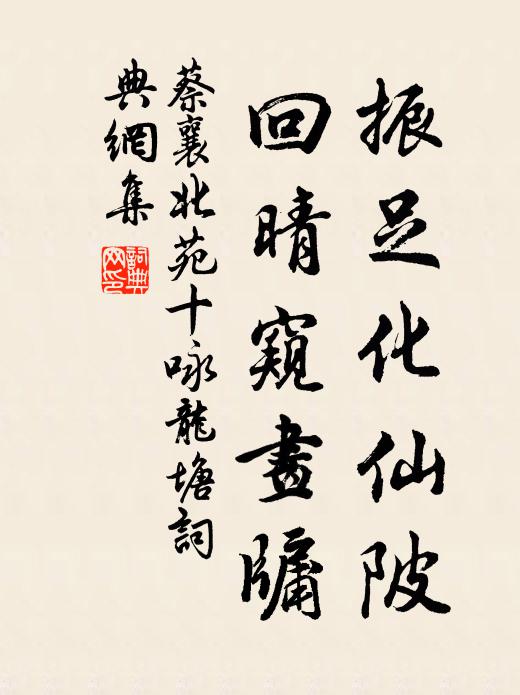 振足化仙陂
回晴窺畫牖
蔡襄北苑十咏龍塘詞
典網集
詞典網印